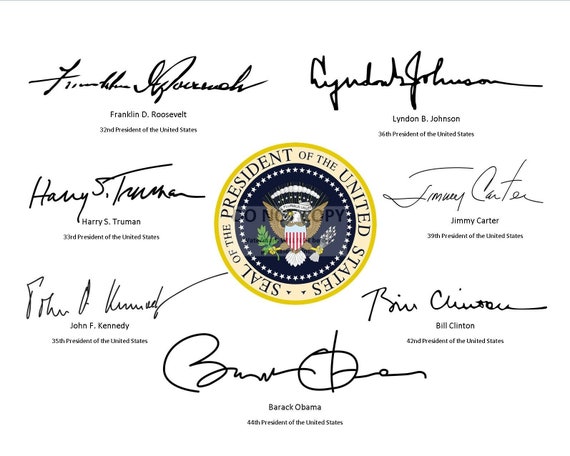 Franklin D. Roosevelt
Franklin D. Roosevelt
32nd President of the United States
Lyndon B. Johnson
Lyndon B. Johnson
36th President of the United States
Harry S. Truman
Harry S. Truman
33rd President of the United States
SEAL OF THE PRESIDENT OF THE UNITED STATES
DO NOT COPY
Jimmy Carter
Jimmy Carter
39th President of the United States
John F. Kennedy
John F. Kennedy
35th President of the United States
Bill Clinton
Bill Clinton
42nd President of the United States
Barack Obama
Barack Obama
44th President of the United States